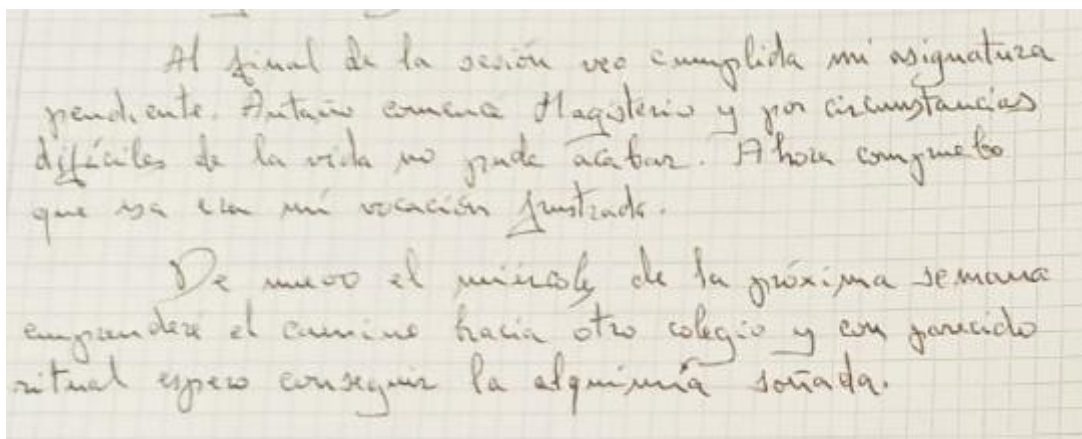 Al final de la sesión veo cumplida mi asignatura
pendiente. Antaño comencé Magisterio y por circunstancias
difíciles de la vida no pude acabar. Ahora compruebo
que esa era mi vocación frustrada.
De nuevo el miércoles de la próxima semana
emprenderé el camino hacia otro colegio y con parecido
ritual espero conseguir la alquimia soñada.